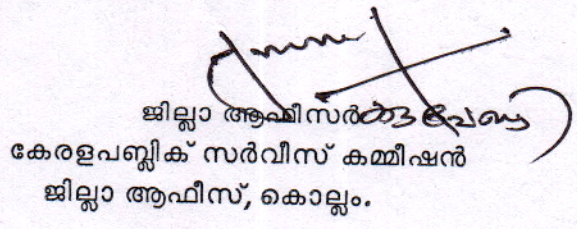 ജില്ലാ ആഫീസർക്കുവേണ്ടി
കേരളപബ്ലിക് സർവീസ് കമ്മീഷൻ
ജില്ലാ ആഫീസ്, കൊല്ലം.